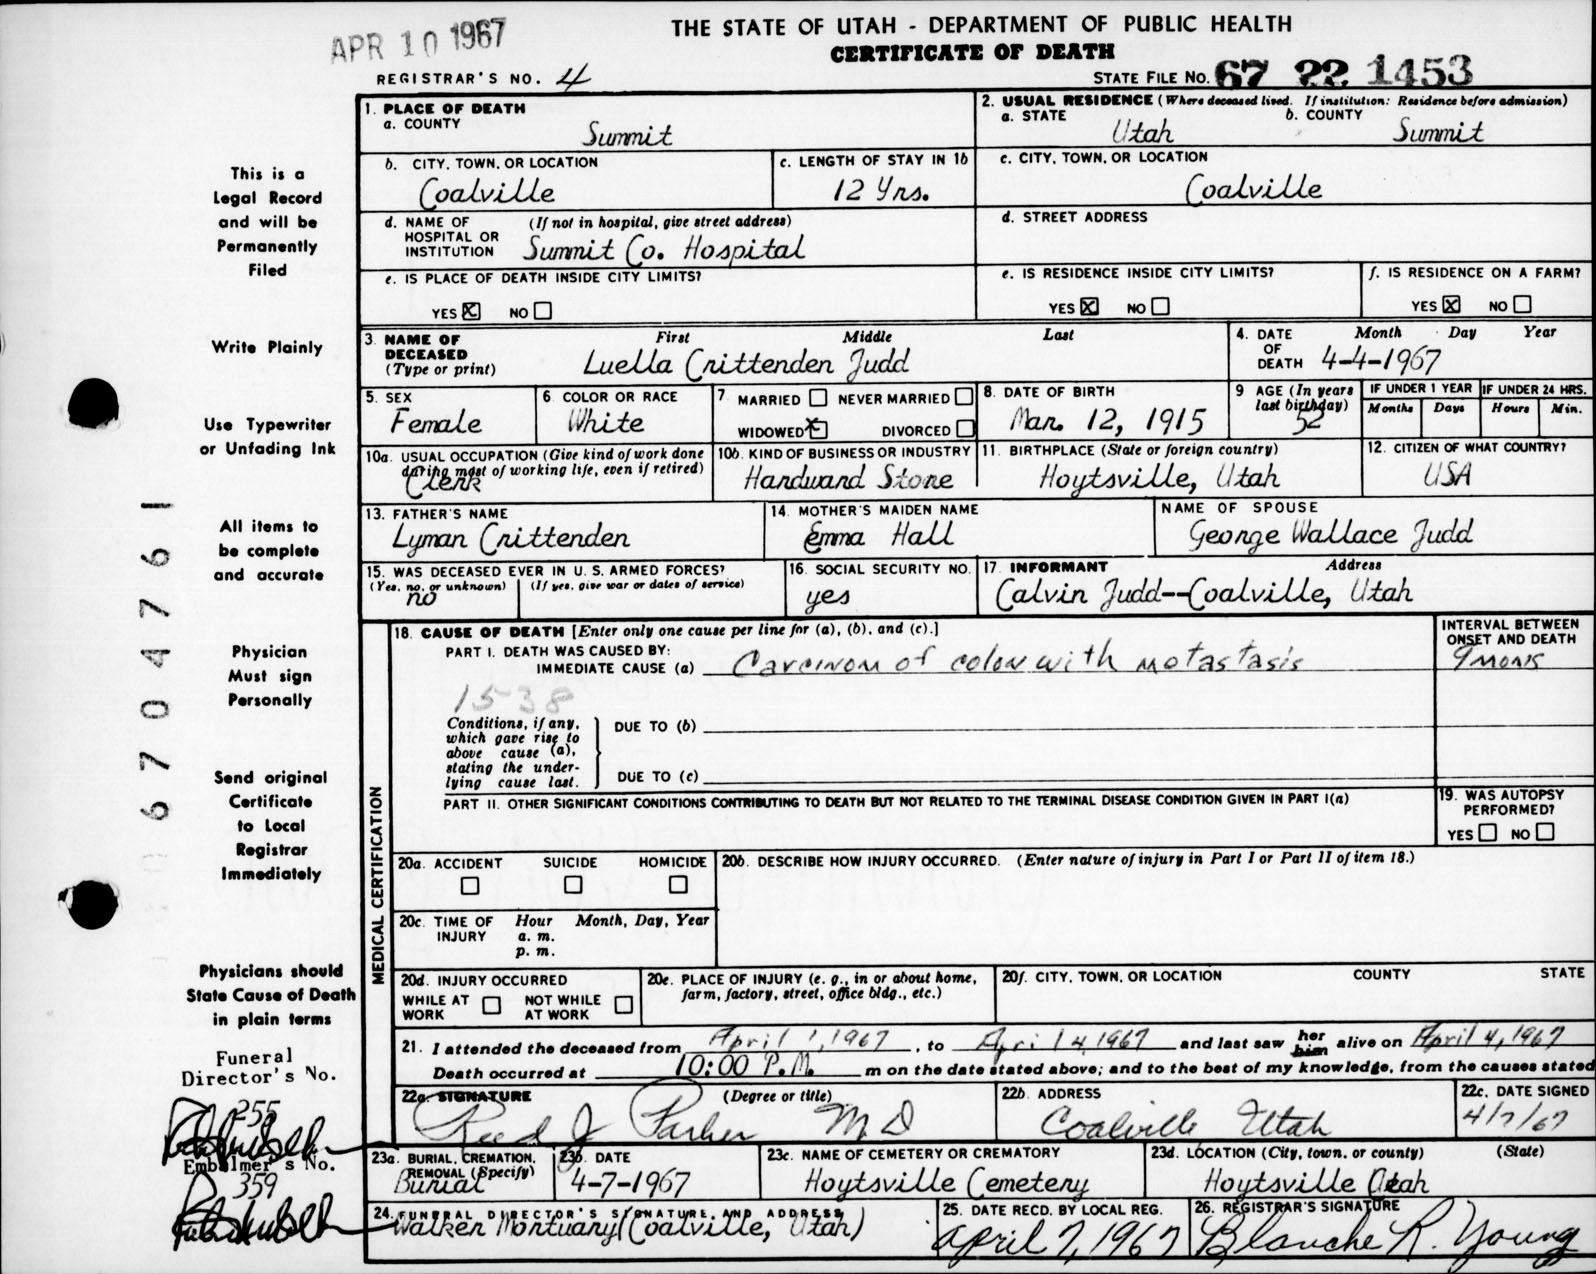 APR 10 1967
THE STATE OF UTAH - DEPARTMENT OF PUBLIC HEALTH
CERTIFICATE OF DEATH
REGISTRAR'S NO. 4
STATE FILE NO. 67 22 1453
This is a
Legal Record
and will be
Permanently
Filed
Write Plainly
Use Typewriter
or Unfading Ink
All items to
be complete
and accurate
Physician
Must sign
Personally
Send original
Certificate
to Local
Registrar
Immediately
Physicians should
State Cause of Death
in plain terms
Funeral
Director's No.
255
Embalmer's No.
359
6704761
1. PLACE OF DEATH
a. COUNTY
Summit
2. USUAL RESIDENCE (Where deceased lived. If institution: Residence before admission)
a. STATE
Utah
b. COUNTY
Summit
b. CITY, TOWN, OR LOCATION
Coalville
c. LENGTH OF STAY IN 1b
12 Yrs.
c. CITY, TOWN, OR LOCATION
Coalville
d. NAME OF (If not in hospital, give street address)
HOSPITAL OR
INSTITUTION Summit Co. Hospital
d. STREET ADDRESS
e. IS PLACE OF DEATH INSIDE CITY LIMITS?
YES X NO
e. IS RESIDENCE INSIDE CITY LIMITS?
YES X NO
f. IS RESIDENCE ON A FARM?
YES X NO
3. NAME OF DECEASED
(Type or print)
First Middle Last
Luella Crittenden Judd
4. DATE OF DEATH
Month Day Year
4-4-1967
5. SEX
Female
6. COLOR OR RACE
White
7 MARRIED NEVER MARRIED
WIDOWED X DIVORCED
8. DATE OF BIRTH
Mar. 12, 1915
9 AGE (In years
last birthday)
52
IF UNDER 1 YEAR
Months Days
IF UNDER 24 HRS.
Hours Min.
10a. USUAL OCCUPATION (Give kind of work done
during most of working life, even if retired)
Clerk
10b. KIND OF BUSINESS OR INDUSTRY
Hardward Store
11. BIRTHPLACE (State or foreign country)
Hoytsville, Utah
12. CITIZEN OF WHAT COUNTRY?
USA
13. FATHER'S NAME
Lyman Crittenden
14. MOTHER'S MAIDEN NAME
Emma Hall
NAME OF SPOUSE
George Wallace Judd
15. WAS DECEASED EVER IN U. S. ARMED FORCES?
(Yes, no, or unknown) (If yes, give war or dates of service)
no
16. SOCIAL SECURITY NO.
yes
17. INFORMANT Address
Calvin Judd--Coalville, Utah
MEDICAL CERTIFICATION
18. CAUSE OF DEATH [Enter only one cause per line for (a), (b), and (c).]
PART I. DEATH WAS CAUSED BY:
IMMEDIATE CAUSE (a) Carcinom of colon with metastasis
INTERVAL BETWEEN
ONSET AND DEATH
1538
Conditions, if any,
which gave rise to
above cause (a),
stating the under-
lying cause last.
DUE TO (b)
DUE TO (c)
PART II. OTHER SIGNIFICANT CONDITIONS CONTRIBUTING TO DEATH BUT NOT RELATED TO THE TERMINAL DISEASE CONDITION GIVEN IN PART I(a)
19. WAS AUTOPSY
PERFORMED?
YES NO
20a. ACCIDENT SUICIDE HOMICIDE
20b. DESCRIBE HOW INJURY OCCURRED. (Enter nature of injury in Part I or Part II of item 18.)
20c. TIME OF INJURY
Hour Month, Day, Year
a. m.
p. m.
20d. INJURY OCCURRED
WHILE AT WORK NOT WHILE AT WORK
20e. PLACE OF INJURY (e. g., in or about home,
farm, factory, street, office bldg., etc.)
20f. CITY, TOWN, OR LOCATION COUNTY STATE
21. I attended the deceased from April 1, 1967, to April 4, 1967 and last saw her him alive on April 4, 1967
Death occurred at 10:00 P.M. m on the date stated above; and to the best of my knowledge, from the causes stated
22a. SIGNATURE (Degree or title)
Reed J Parker M D
22b. ADDRESS
Coalville Utah
22c. DATE SIGNED
4/7/67
23a. BURIAL, CREMATION,
REMOVAL (Specify)
Burial
23b. DATE
4-7-1967
23c. NAME OF CEMETERY OR CREMATORY
Hoytsville Cemetery
23d. LOCATION (City, town, or county) (State)
Hoytsville Utah
24. FUNERAL DIRECTOR'S SIGNATURE, AND ADDRESS
Walker Mortuary (Coalville, Utah)
25. DATE RECD. BY LOCAL REG.
april 7, 1967
26. REGISTRAR'S SIGNATURE
Blanche R. Young